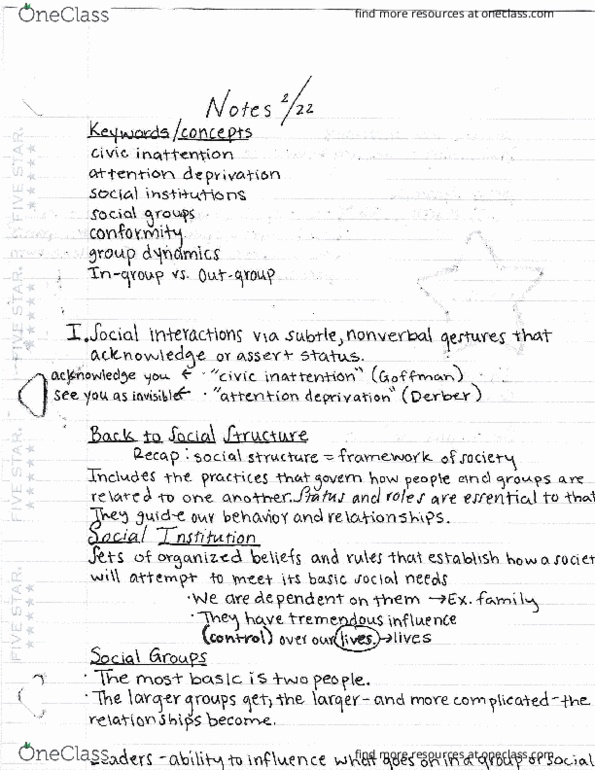 OneClass find more resources at oneclass.com
Notes 2/22
Keywords/concepts
civic inattention
attention deprivation
social institutions
social groups
conformity
group dynamics
In-group vs. Out-group
I. Social interactions via subtle, nonverbal gestures that
acknowledge or assert status.
acknowledge you ← · "civic inattention" (Goffman)
see you as invisible ← · "attention deprivation" (Derber)
Back to Social Structure
Recap: social structure = framework of society
Includes the practices that govern how people and groups are
related to one another. Status and roles are essential to that
They guide our behavior and relationships.
Social Institution
Sets of organized beliefs and rules that establish how a societ
will attempt to meet its basic social needs
· We are dependent on them → Ex. family
· They have tremendous influence
(control) over our lives. → lives
Social Groups
· The most basic is two people.
· The larger groups get, the larger - and more complicated - the
relationships become.
Leaders - ability to influence what goes on in a group or social
OneClass find more resources at oneclass.com
FIVE STAR.
FIVE STAR.
FIVE STAR.
FIVE STAR.